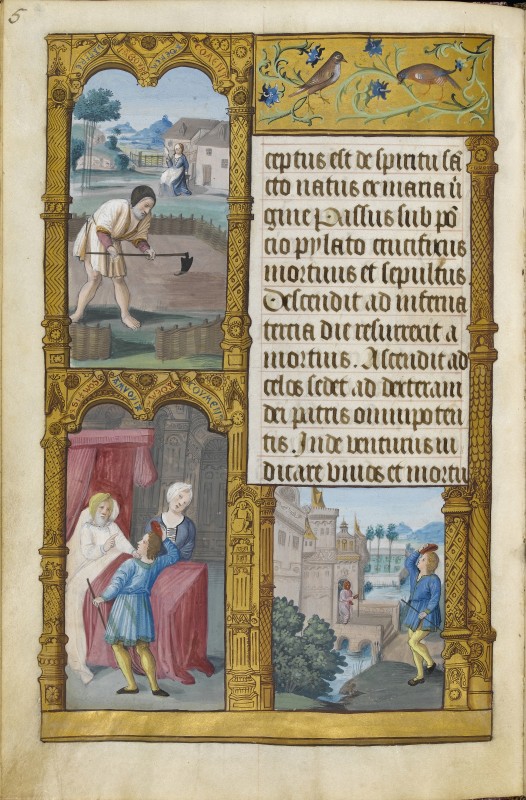 5
ceptus est de spiritu sā
cto natus ex maria ṽ
gine Passus sub pō
cio pylato crucifixus
mortuus et sepultus
Descendit ad inferna
tercia die resurrexit a
mortuis. Ascendit ad
celos sedet ad dexteram
dei patris omnipoten
tis. Inde venturus iu
dicare vivos et mortu